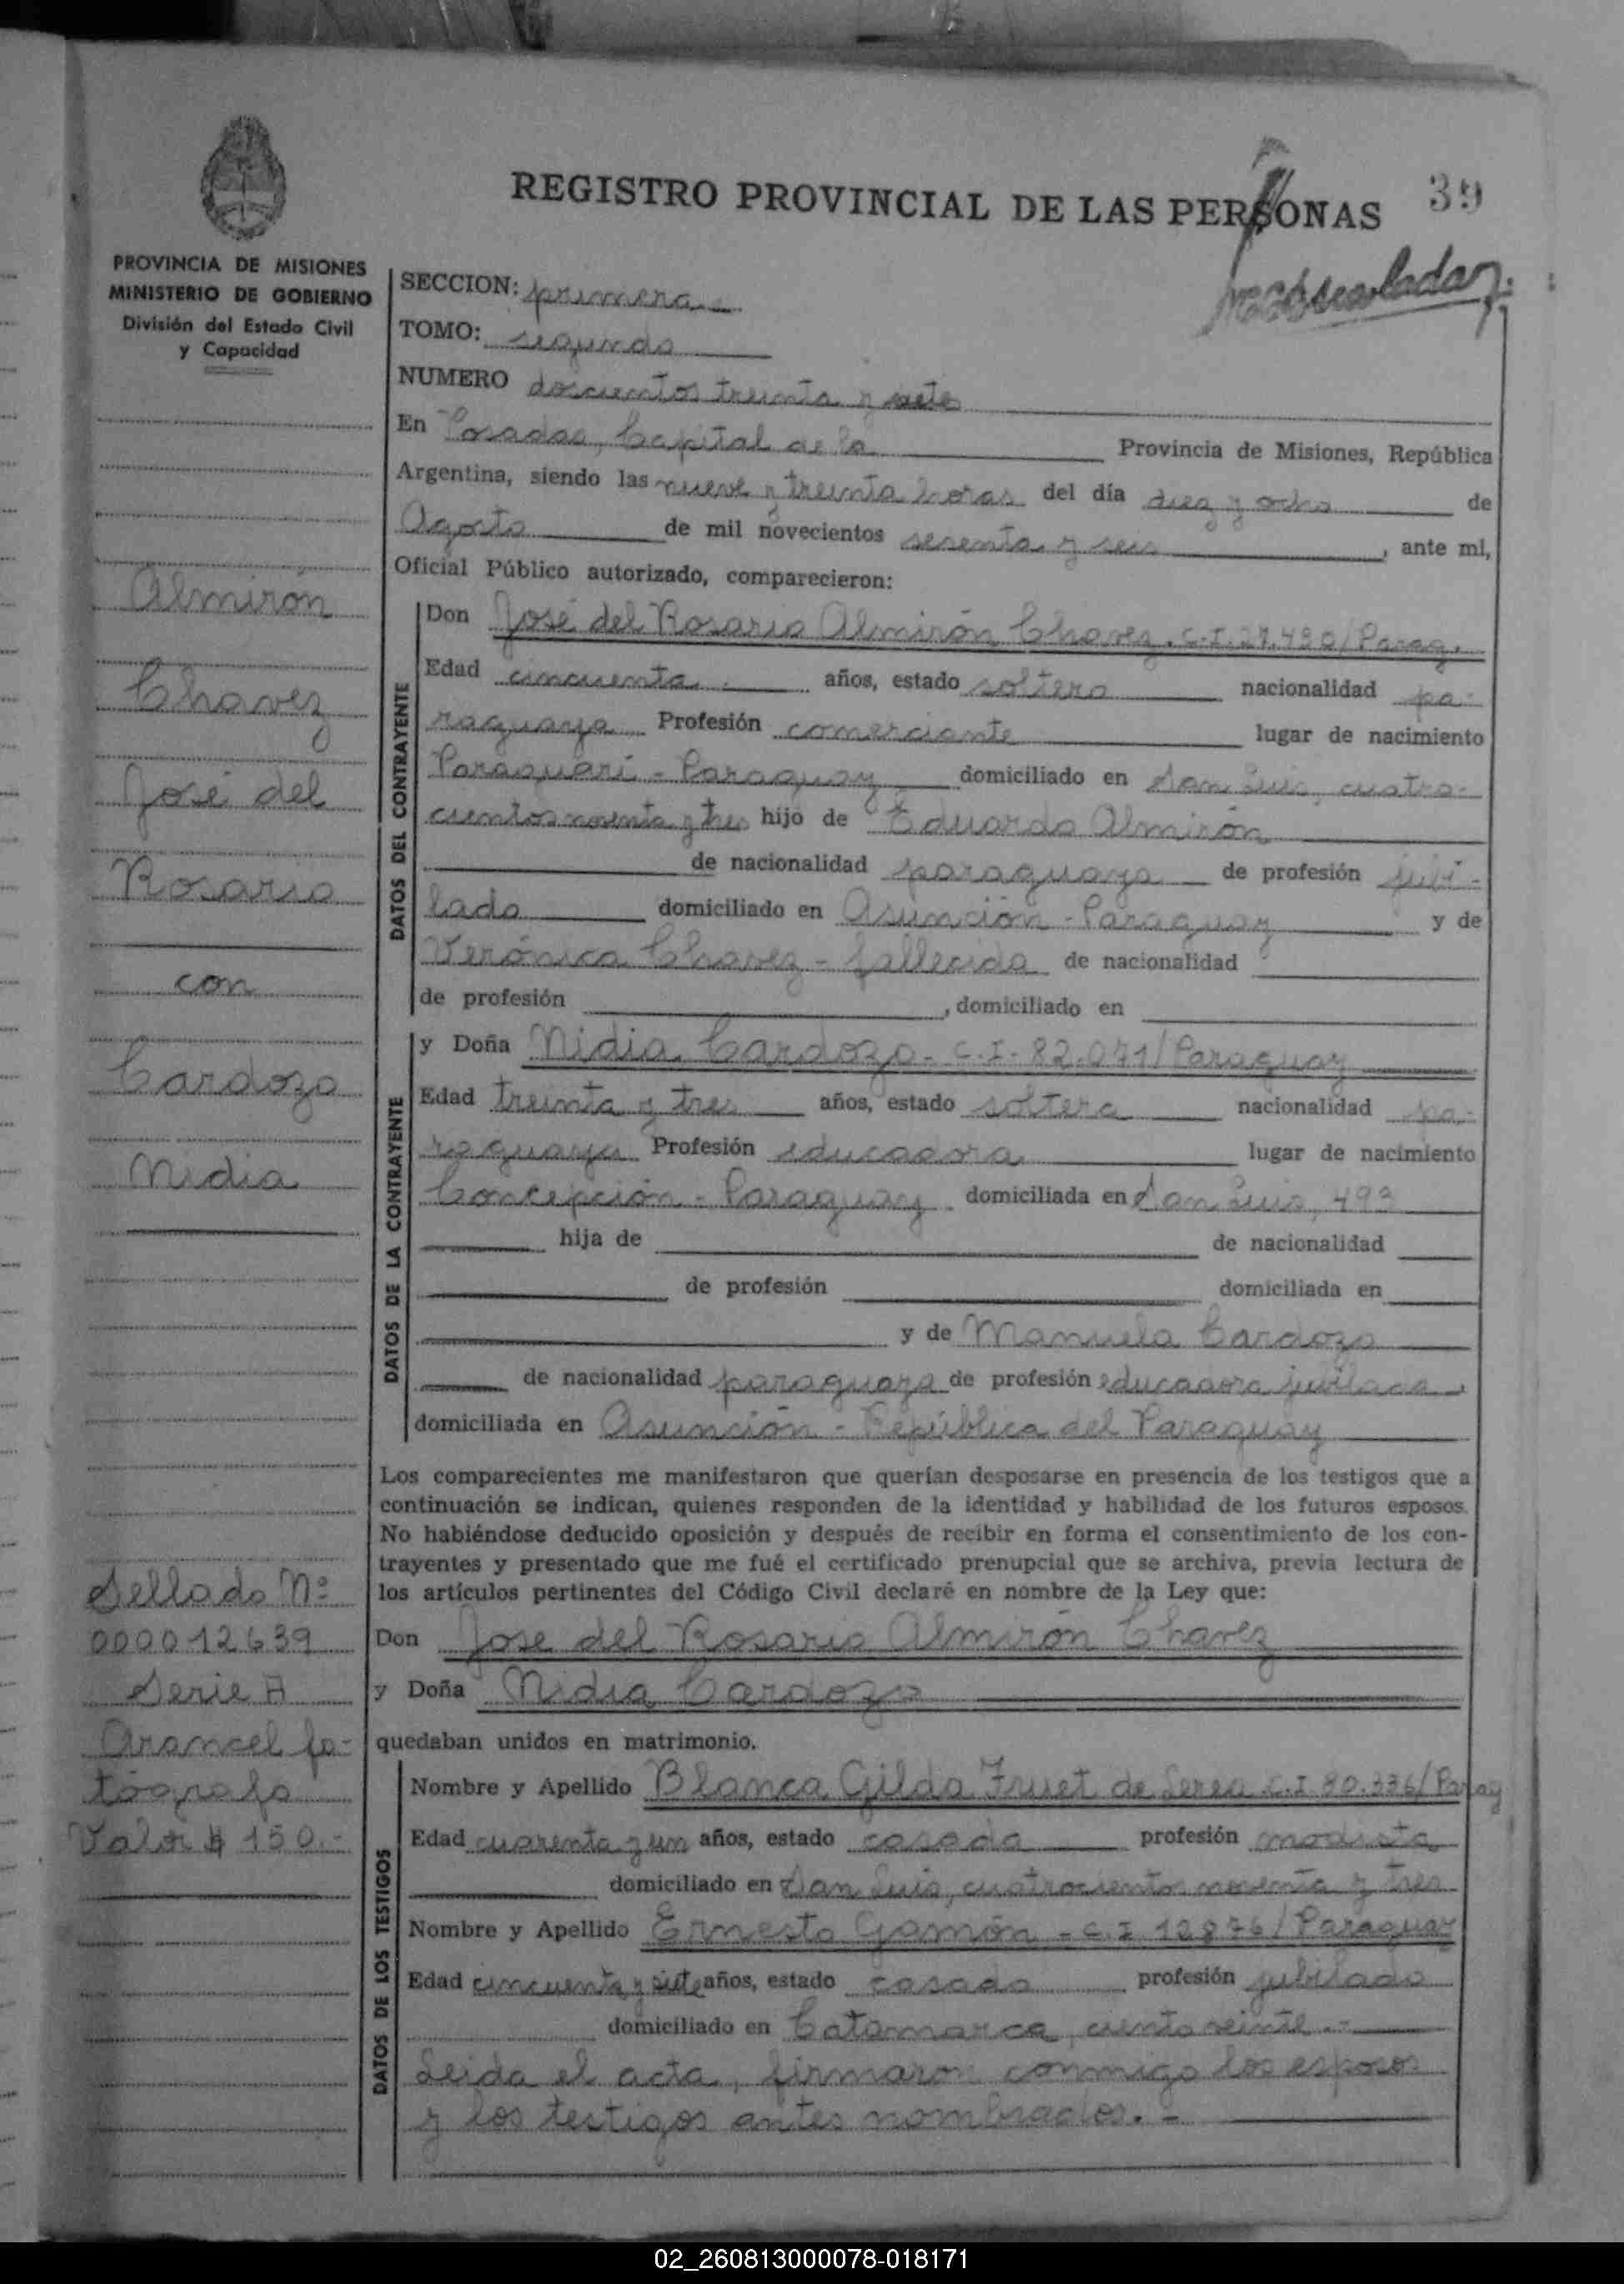 REGISTRO PROVINCIAL DE LAS PERSONAS
39
PROVINCIA DE MISIONES
MINISTERIO DE GOBIERNO
División del Estado Civil
y Capacidad
Almirón
Chavez
José del
Rosario
con
Cardozo
Nidia
Sellado Nº
000012639
Serie A
Arancel fo-
tógrafo
Valor $ 150.-
SECCION: primera
TOMO: segundo
NUMERO doscientos treinta y siete
En Posadas, Capital de la Provincia de Misiones, República
Argentina, siendo las nueve y treinta horas del día diez y ocho de
Agosto de mil novecientos sesenta y seis, ante mi,
Oficial Público autorizado, comparecieron:
DATOS DEL CONTRAYENTE
Don José del Rosario Almirón Chavez. C.I. 27.490/Parag.
Edad cincuenta años, estado soltero nacionalidad pa-
raguaya Profesión comerciante lugar de nacimiento
Paraguarí - Paraguay domiciliado en San Luis, cuatro-
cientos noventa y tres hijo de Eduardo Almirón
de nacionalidad paraguaya de profesión jubi-
lado domiciliado en Asunción - Paraguay y de
Verónica Chavez - fallecida de nacionalidad
de profesión , domiciliado en
DATOS DE LA CONTRAYENTE
y Doña Nidia Cardozo - C.I. 82.071/Paraguay
Edad treinta y tres años, estado soltera nacionalidad pa-
raguaya Profesión educadora lugar de nacimiento
Concepción - Paraguay domiciliada en San Luis, 493
hija de de nacionalidad
de profesión domiciliada en
y de Manuela Cardozo
de nacionalidad paraguaya de profesión educadora jubilada,
domiciliada en Asunción - República del Paraguay
Los comparecientes me manifestaron que querían desposarse en presencia de los testigos que a
continuación se indican, quienes responden de la identidad y habilidad de los futuros esposos.
No habiéndose deducido oposición y después de recibir en forma el consentimiento de los con-
trayentes y presentado que me fué el certificado prenupcial que se archiva, previa lectura de
los artículos pertinentes del Código Civil declaré en nombre de la Ley que:
Don Jose del Rosario Almirón Chavez
y Doña Nidia Cardozo
quedaban unidos en matrimonio.
DATOS DE LOS TESTIGOS
Nombre y Apellido Blanca Gilda Fruet de C.I. 80.336/Parag
Edad cuarenta y un años, estado casada profesión modista
domiciliado en San Luis, cuatrocientos noventa y tres
Nombre y Apellido Ernesto Gamón - C.I 12876/Paraguay
Edad cincuenta y siete años, estado casado profesión jubilado
domiciliado en Catamarca, ciento veinte.-
Leida el acta, firmaron conmigo los esposos
y los testigos antes nombrados.-
02_260813000078-018171